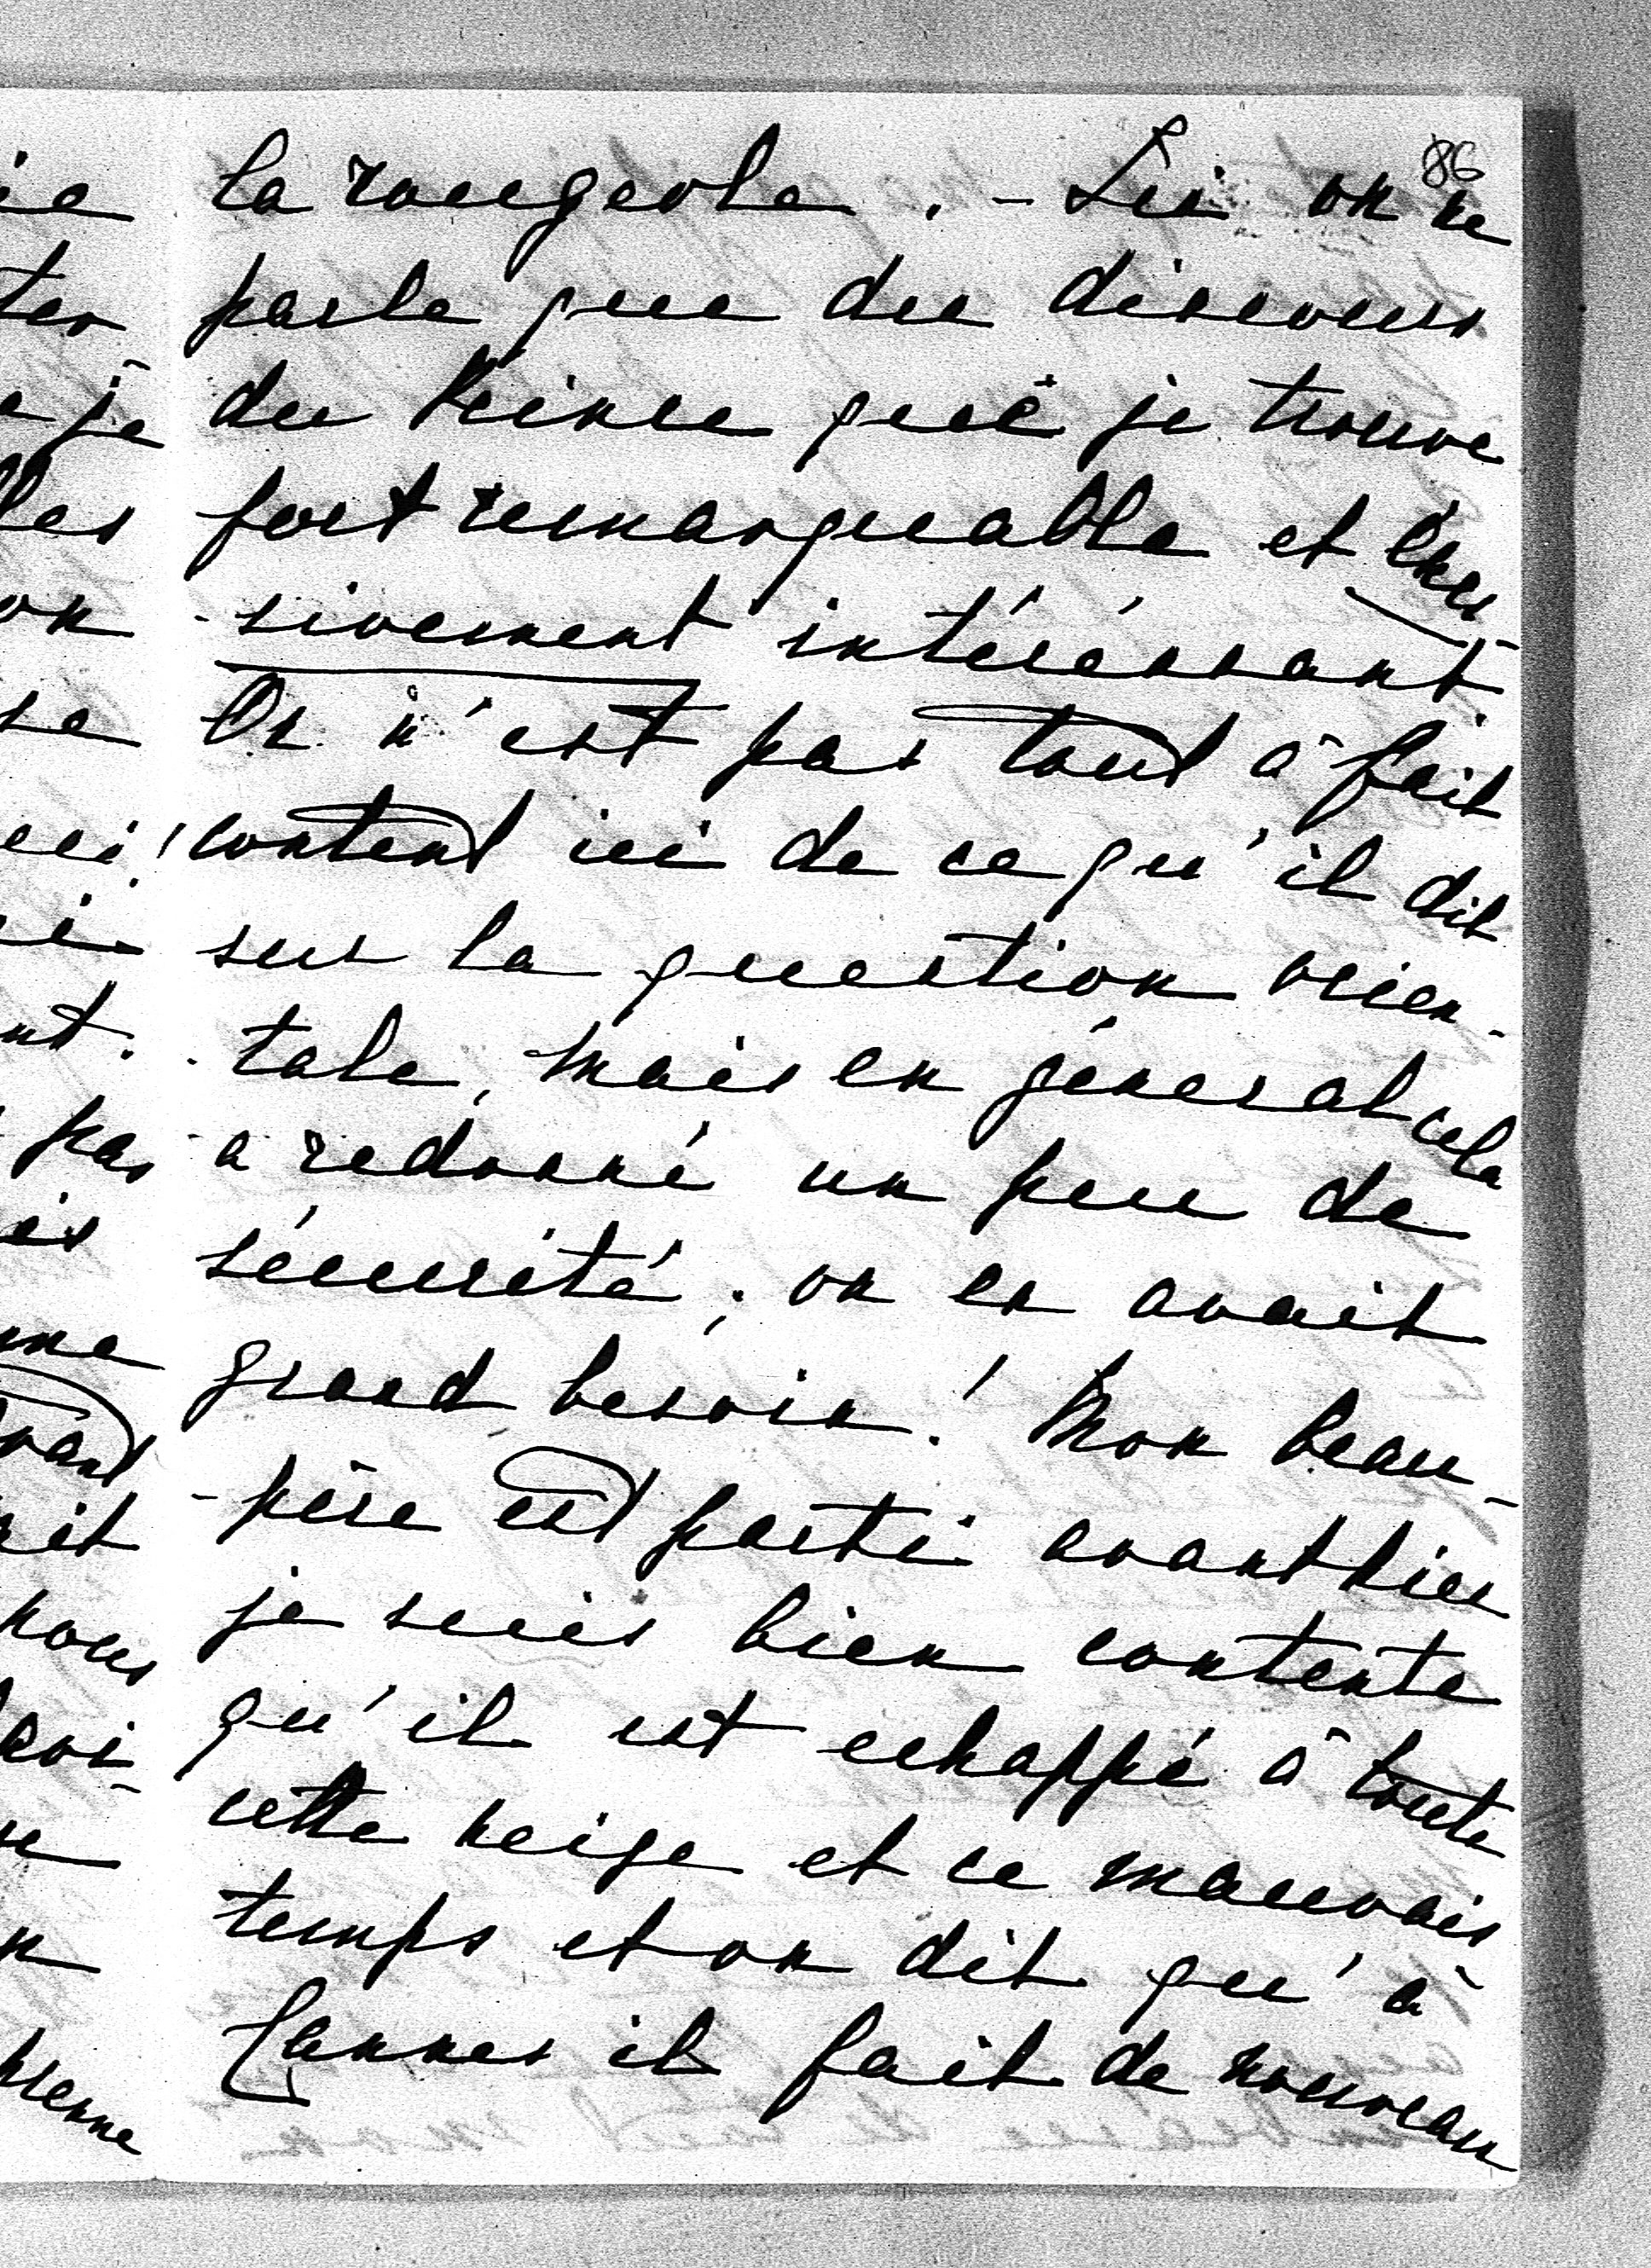 86
la rougeole. - Ici on ne
parle que du discours
du Prince que je trouve
fort remarquable et
sivement intéressant
On n'est pas tout à fait
content ici de ce qu'il dit
sur la question orien-
tale, mais en général cela
a redonné un peu de
sécurité; on en avait
grand besoin! Mon beau-
-père est parti avant hier
je suis bien contente
qu'il est echappé à toute
cette neige et ce mauvais
temps et on dit qu'à
Cannes il fait de nouveau
ter
je
les
on
se
nt.
pas
nous